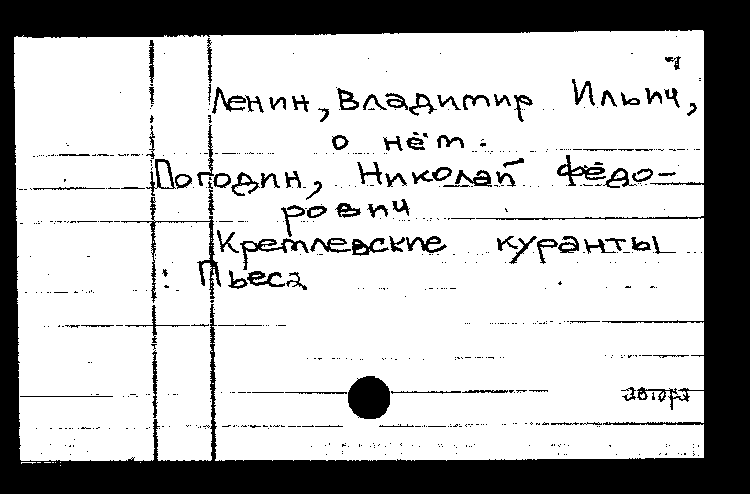 Ленин, Владимир Ильич,
о нём.
Погодин, Николай Фёдо-
рович
Кремлевские куранты
: Пьеса
автора